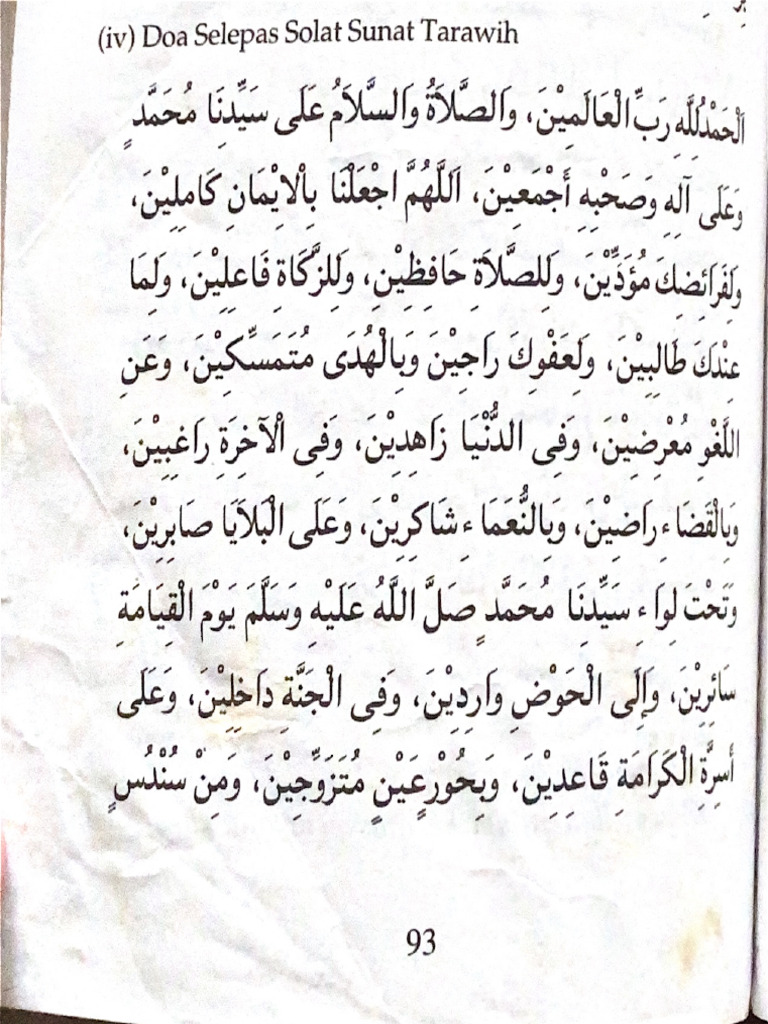 (iv) Doa Selepas Solat Sunat Tarawih
اَلْحَمْدُلِلَّهِ رَبِّ الْعَالَمِيْنَ، وَالصَّلاَةُ وَالسَّلاَمُ عَلَى سَيِّدِنَا مُحَمَّدٍ
وَعَلَى آلِهِ وَصَحْبِهِ أَجْمَعِيْنَ، اَللَّهُمَّ اجْعَلْنَا بِاْلاِيْمَانِ كَامِلِيْنَ،
وَلِفَرَائِضِكَ مُؤَدِّيْنَ، وَلِلصَّلاَةِ حَافِظِيْنِ، وَلِلزَّكَاةِ فَاعِلِيْنَ، وَلِمَا
عِنْدَكَ طَالِبِيْنَ، وَلِعَفْوِكَ رَاجِيْنَ وَبِالْهُدَى مُتَمَسِّكِيْنَ، وَعَنِ
اللَّغْوِ مُعْرِضِيْنَ، وَفِى الدُّنْيَا زَاهِدِيْنَ، وَفِى الْآخِرَةِ رَاغِبِيْنَ،
وَبِالْقَضَاءِ رَاضِيْنَ، وَبِالنُّعَمَاءِ شَاكِرِيْنَ، وَعَلَى الْبَلاَيَا صَابِرِيْنَ،
وَتَحْتَ لِوَاءِ سَيِّدِنَا مُحَمَّدٍ صَلَّ اللَّهُ عَلَيْهِ وَسَلَّمَ يَوْمَ الْقِيَامَةِ
سَائِرِيْنَ، وَإِلَى الْحَوْضِ وَارِدِيْنَ، وَفِى الْجَنَّةِ دَاخِلِيْنَ، وَعَلَى
أَسِرَّةِ الْكَرَامَةِ قَاعِدِيْنَ، وَبِحُوْرٍعَيْنٍ مُتَزَوِّجِيْنَ، وَمِنْ سُنْدُسٍ
93